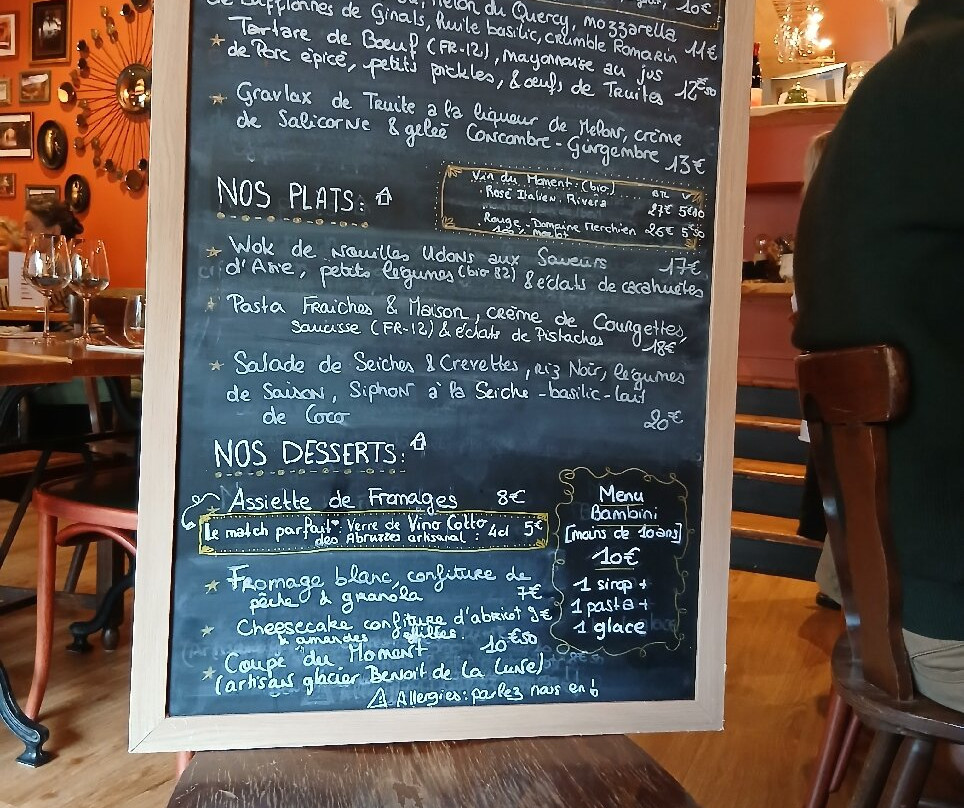 10€
Melon du Quercy, mozzarella
de Ginals, huile basilic, crumble Romarin
11€
Tartare de Bœuf (FR-12), mayonnaise au jus
de Porc épicé, petits pickles, & œufs de Truites 12€50
Gravlax de Truite a la liqueur de Melon, crème
de Salicorne & geleé Concombre - Gingembre
13€
NOS PLATS:
Vin du Moment: (bio)
BTL V
Rosé Italien, Rivera 27€ 5€10
Rouge - Domaine Merchien 26€ 5€50
100% merlot
Wok de Nouilles Udons aux Saveurs 17€
d'Asie, petits légumes (bio 82) & éclats de cacahuètes
Pasta Fraiches & Maison, crème de Courgettes,
saucisse (FR-12) & éclats de Pistaches 18€
Salade de Seiches & Crevettes, riz Noir, légumes
de Saison, Siphon à la Seiche - basilic - lait
de Coco 20€
NOS DESSERTS:
Assiette de Fromages 8€
Le match parfait: Verre de Vino Cotto
des Abruzzes artisanal : 4cl 5€
Fromage blanc, confiture de
pêche & granola 7€
Cheesecake confiture d'abricot 9€
& amandes effilées
Coupe du Moment 10€50
(artisan glacier Benoit de la Lune)
⚠ Allergies: parlez nous en !
Menu
Bambini
[moins de 10 ans]
10€
1 sirop +
1 pasta +
1 glace